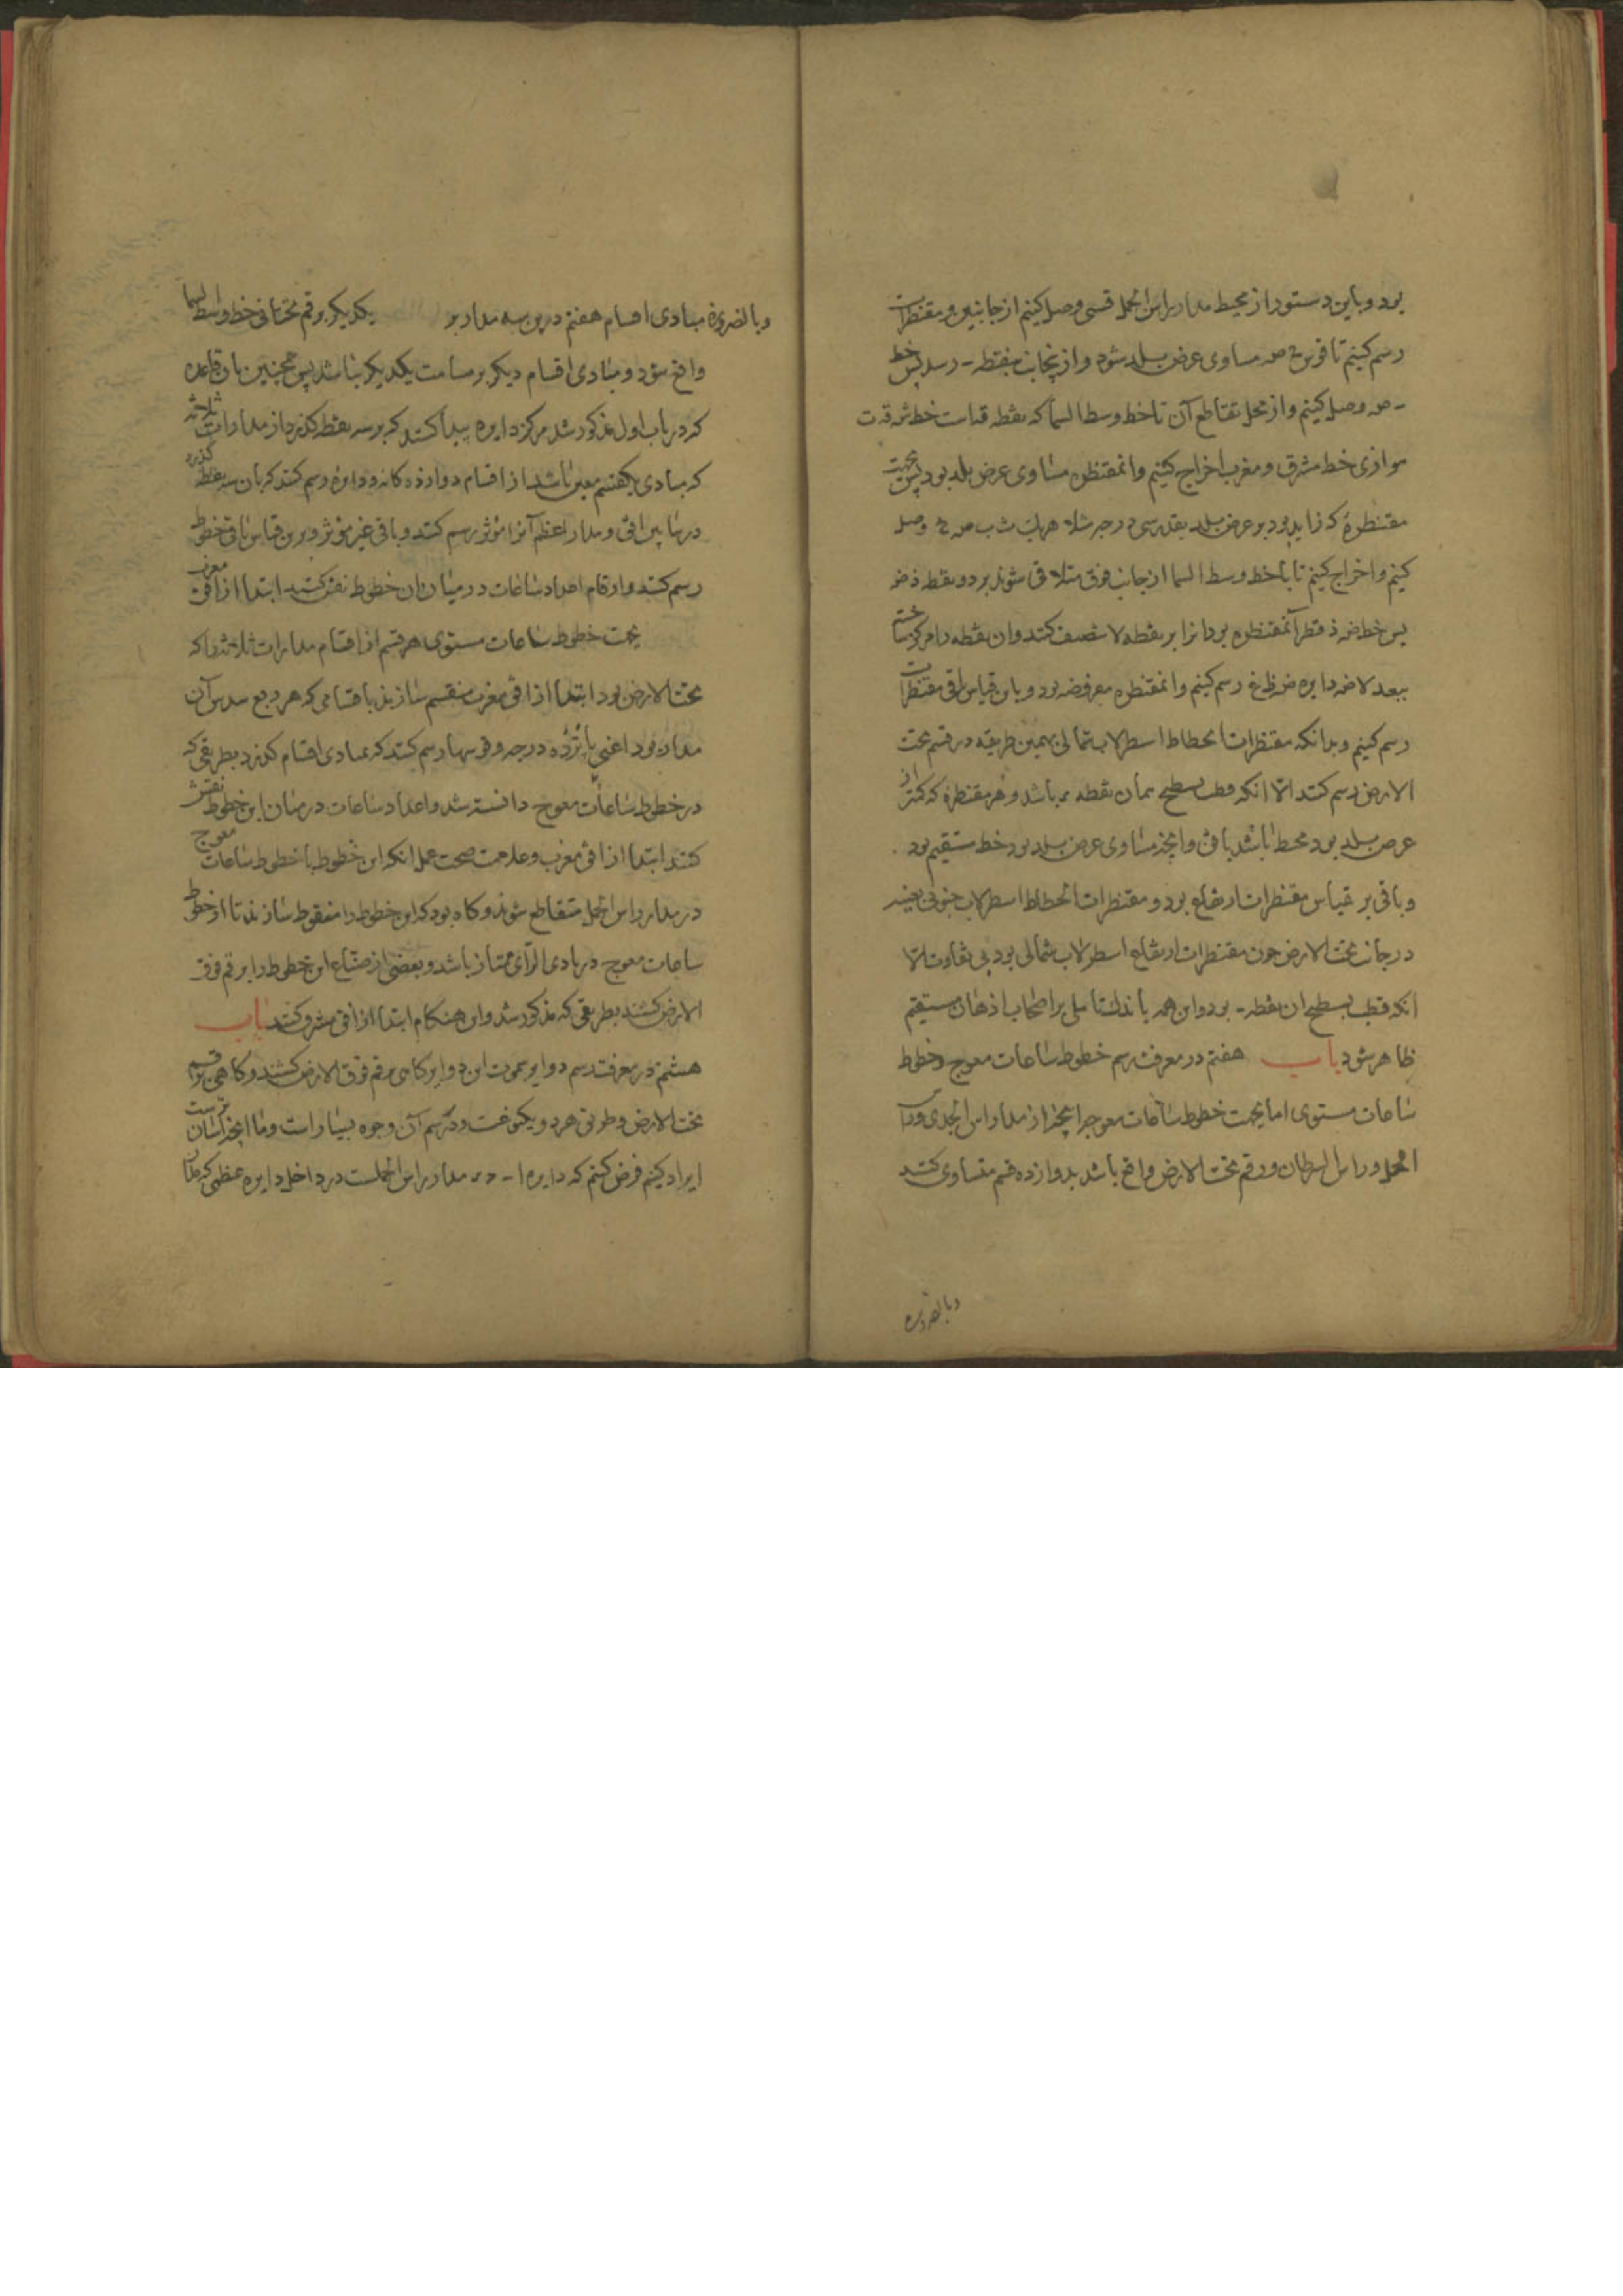 بود و باین دستور از محیط مدار راس الحمل قسی وصل کنیم از جانبین و مقنطرات
رسم کنیم تا قوس ح صہ مساوی عرض بلد شود و از نجانب بنقطه ـ رسد پس خط
ـ صہ وصل کنیم و از محل تقاطع آن تا خط وسط السما که نقطه قـ است خط
موازی خط مشرق و مغرب اخراج کنیم و ان مقنطره مساوی عرض بلد بود پس بجهت
مقنطرهٔ که زاید بود بر عرض بلد بقدر سی درجه مثلا هر یک وصل
کنیم و اخراج کنیم تا با خط وسط السما از جانب فوق متلاقی شوند بر دو نقطه ذ ضہ
پس خط ضہ ذ قطر آن مقنطره بود انرا بر نقطه لا تنصیف کنند و ان نقطه را مرکز ساخته
ببعد لا ضہ دایره رسم کنیم و ان مقنطره مفروضه بود و باین قیاس باقی مقنطرات
رسم کنیم و بدانکه مقنطرات انحطاط اسطرلاب شمالی بهمین طریقه در قسم تحت
الارض رسم کنند الا انکه قطب سطح همان نقطه باشد و هر مقنطره که کمتر از
عرض بلد بود محیط باشد بافق و انچه مساوی عرض بلد بود خط مستقیم بود
و باقی بر قیاس مقنطرات ارتفاع بود و مقنطرات انحطاط اسطرلاب جنوبی بعینه
در جانب تحت الارض چون مقنطرات ارتفاع اسطرلاب شمالی بود بی تفاوت الا
انکه قطب سطح ان نقطه ـ بود و این همه باندک تاملی بر اصحاب اذهان مستقیم
ظاهر شود باب هفتم در معرفت رسم خطوط ساعات معوج و خطوط
ساعات مستوی اما بجهت خطوط ساعات معوج انچه از مدار راس الجدی و راس
الحمل و راس السرطان در قسم تحت الارض واقع باشد بدوازده قسم متساوی کنند
وبالضروره
وبالضروره مبادی اقسام هفتم درین سه مدار بر یکدیگر بر قسم تحتانی خط وسط السما
واقع شود و مبادی اقسام دیگر بر مسامت یکدیگر نباشد پس همچنین بان قاعده
که در باب اول مذکور شد مرکز دایره پیدا کنند که بر سه نقطه کذرد از مدارات ثلاثه
که مبادی یکقسم معین باشد از اقسام دوازده کانه و دایره رسم کنند که بان سه نقطه کذرد
درمابین افق و مدار اعظم انرا موثر رسم کنند و باقی غیر موثر و برین قیاس باقی خطوط
رسم کنند و ارقام اعداد ساعات در میان ان خطوط نقش کنند ابتدا از افق مغرب
بجهت خطوط ساعات مستوی هر قسم از اقسام مدارات ثلاثه را که
تحت الارض بود ابتدا از افق مغرب منقسم سازند باقسامی که هر ربع سدس آن
مدار بود اعنی پانزده درجه و قسیها رسم کنند که بمبادی اقسام کذرد بطریقی که
در خطوط ساعات معوج دانسته شد و اعداد ساعات در میان این خطوط نقش
کنند ابتدا از افق مغرب و علامت صحت عمل انکه این خطوط با خطوط ساعات معوج
در مدار راس الحمل متقاطع شوند و کاه بود که این خطوط را منقوط سازند تا از خطوط
ساعات معوج در بادی الرای ممتاز باشد و بعضی از صناع این خطوط را بر قسم فوق
الارض کشند بطریقی که مذکور شد و این هنکام ابتدا از افق مشرق کنند باب
هشتم در معرفت رسم دوایر سموت این دوایر کاهی بر قسم فوق الارض کشند و کاهی بر قسم
تحت الارض و طریق هر دو یکنوعست و در رسم آن وجوه بسیار است و ما انچه اسان تر است
ایراد کنیم فرض کنیم که دایره ا ـ مدار راس الحملست در داخل دایره عظمی که مدار